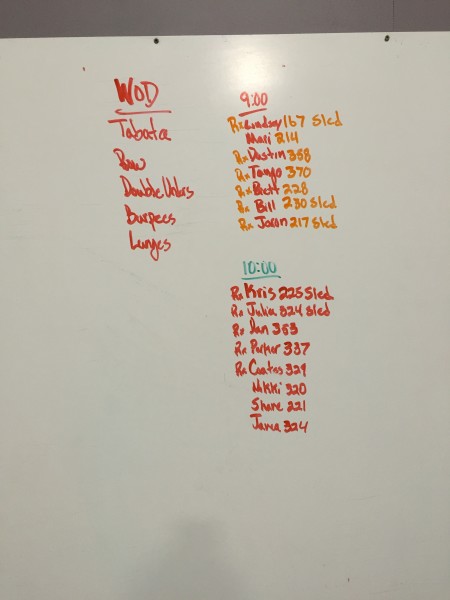 WOD
Tabata
Row
Double Unders
Burpees
Lunges
9:00
Rx Lindsay 167 Sled
Mari 214
Rx Dustin 358
Rx Tango 370
Rx Brett 228
Rx Bill 230 Sled
Rx Jaron 217 Sled
10:00
Rx Kris 225 Sled
Rx Julia 324 Sled
Rx Dan 353
Rx Parker 337
Rx 329
Nikki 320
Shane 221
324